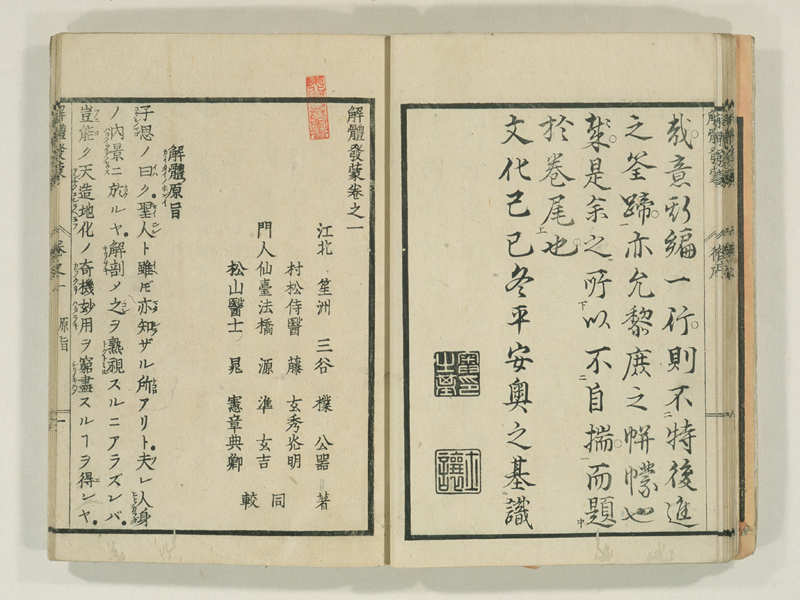 哉意新編一行則不特後進
之筌蹄亦允黎庶之帡幪也
是余之所以不自揣而題
於卷尾也
文化己巳冬平安奥之基識
解體發蒙
解體發蒙卷之一
江北 笙洲 三谷 樸 公器 著
村松侍醫 藤 玄秀 明
門人仙臺法橋 源 準 玄吉 同
松山醫士 晁 憲章 典卿 較
解體原旨
子思ノ曰ク聖人ト雖ドモ亦知ザル所アリト夫レ人身
ノ內景ニ於ルヤ解剖メ之ヲ熟視スルニアラズンバ
豈能ク天造地化ノ奇機妙用ヲ窮盡スルヿヲ得ンヤ
解體發蒙 卷之一 原旨 一